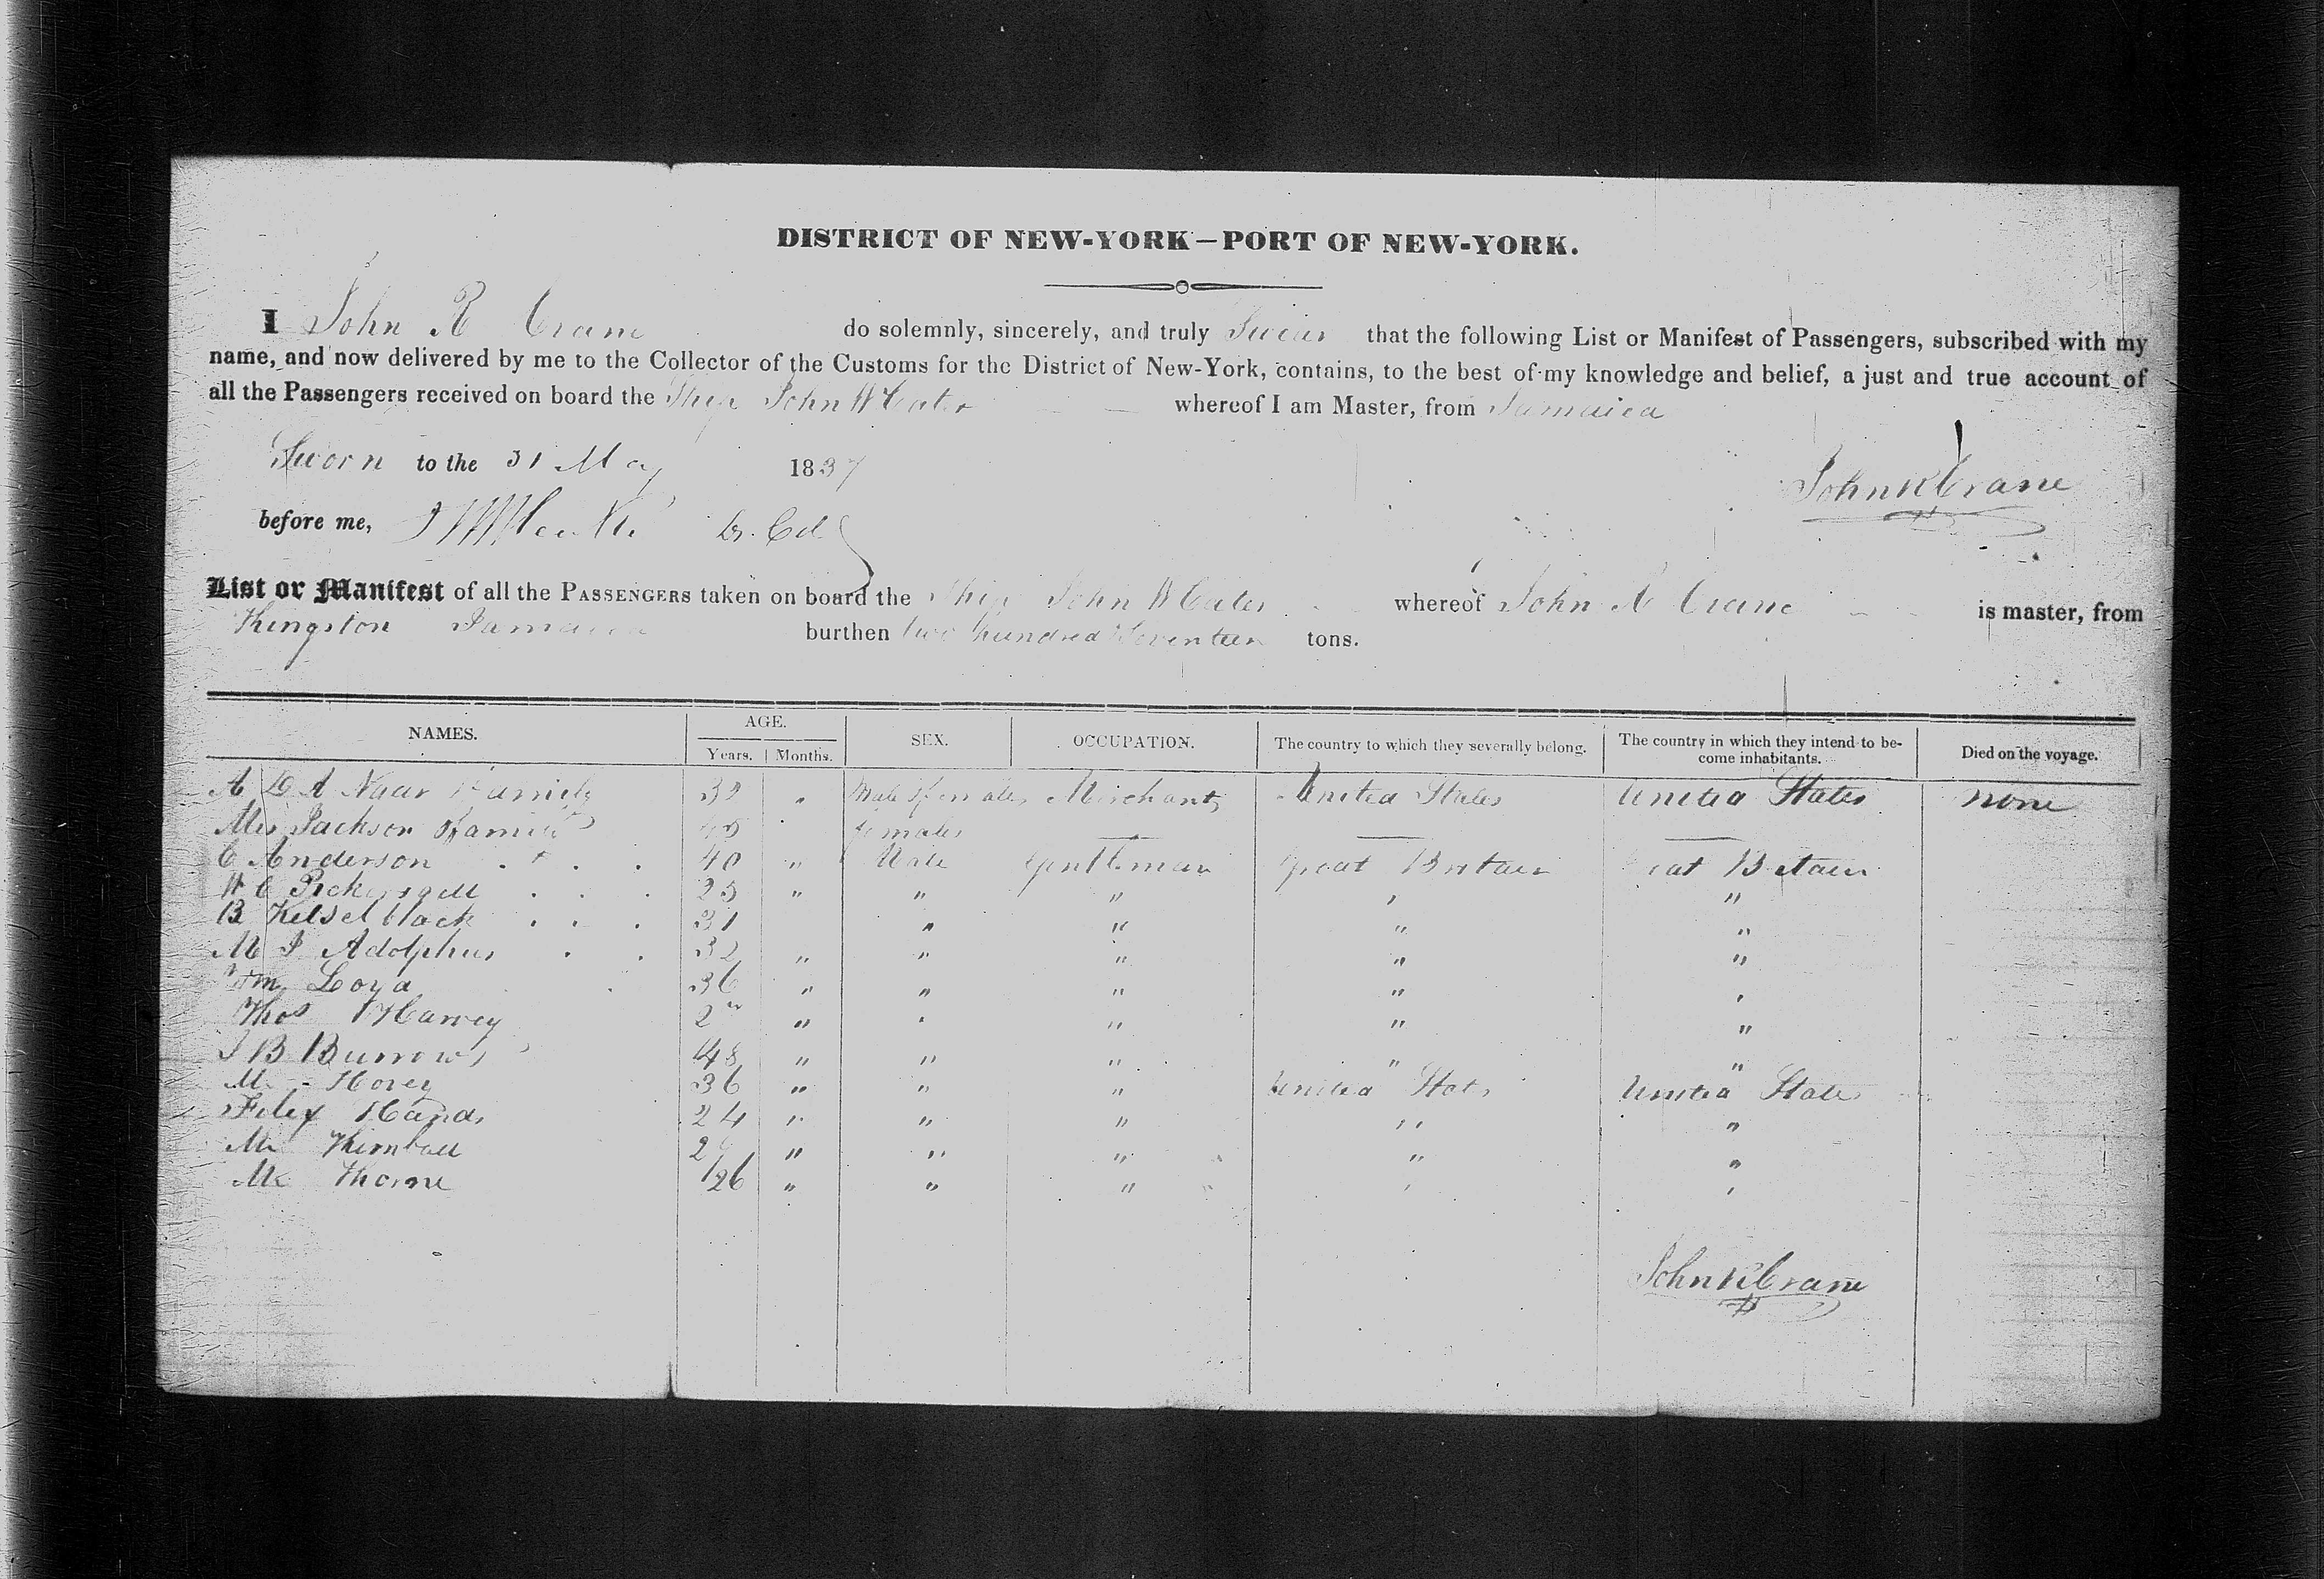 DISTRICT OF NEW-YORK—PORT OF NEW-YORK.
I John R Crane do solemnly, sincerely, and truly Swear that the following List or Manifest of Passengers, subscribed with my
name, and now delivered by me to the Collector of the Customs for the District of New-York, contains, to the best of my knowledge and belief, a just and true account of
all the Passengers received on board the Ship John W Cater whereof I am Master, from Jamaica
Sworn to the 31 May 1837
John R Crane
before me, Col
List or Manifest of all the PASSENGERS taken on board the Ship John W Cater whereof John R Crane is master, from
Kingston Jamaica burthen two hundred Seventeen tons.
NAMES. AGE. SEX. OCCUPATION. The country to which they severally belong. The country in which they intend to be- Died on the voyage.
Years. Months. come inhabitants.
A D A Naar Family 32 " Male & females Merchant United States United States none
Mrs Jackson & family females — — —
C Anderson 40 " Male Gentleman Great Britain Great Britain
W C Pickersgill 25 " " " " "
B Ketselblack 31 " " " "
M J Adolphus 32 " " " " "
Wm Loya 36 " " " " "
Thos Harvey " " " " "
J B Burrows 48 " " " " "
M Hovey 36 " " " United States United States
Felix Hands 24 " " " " "
Mr Kimball " " " " "
Mr Thorne 26 " " " " "
John R Crane